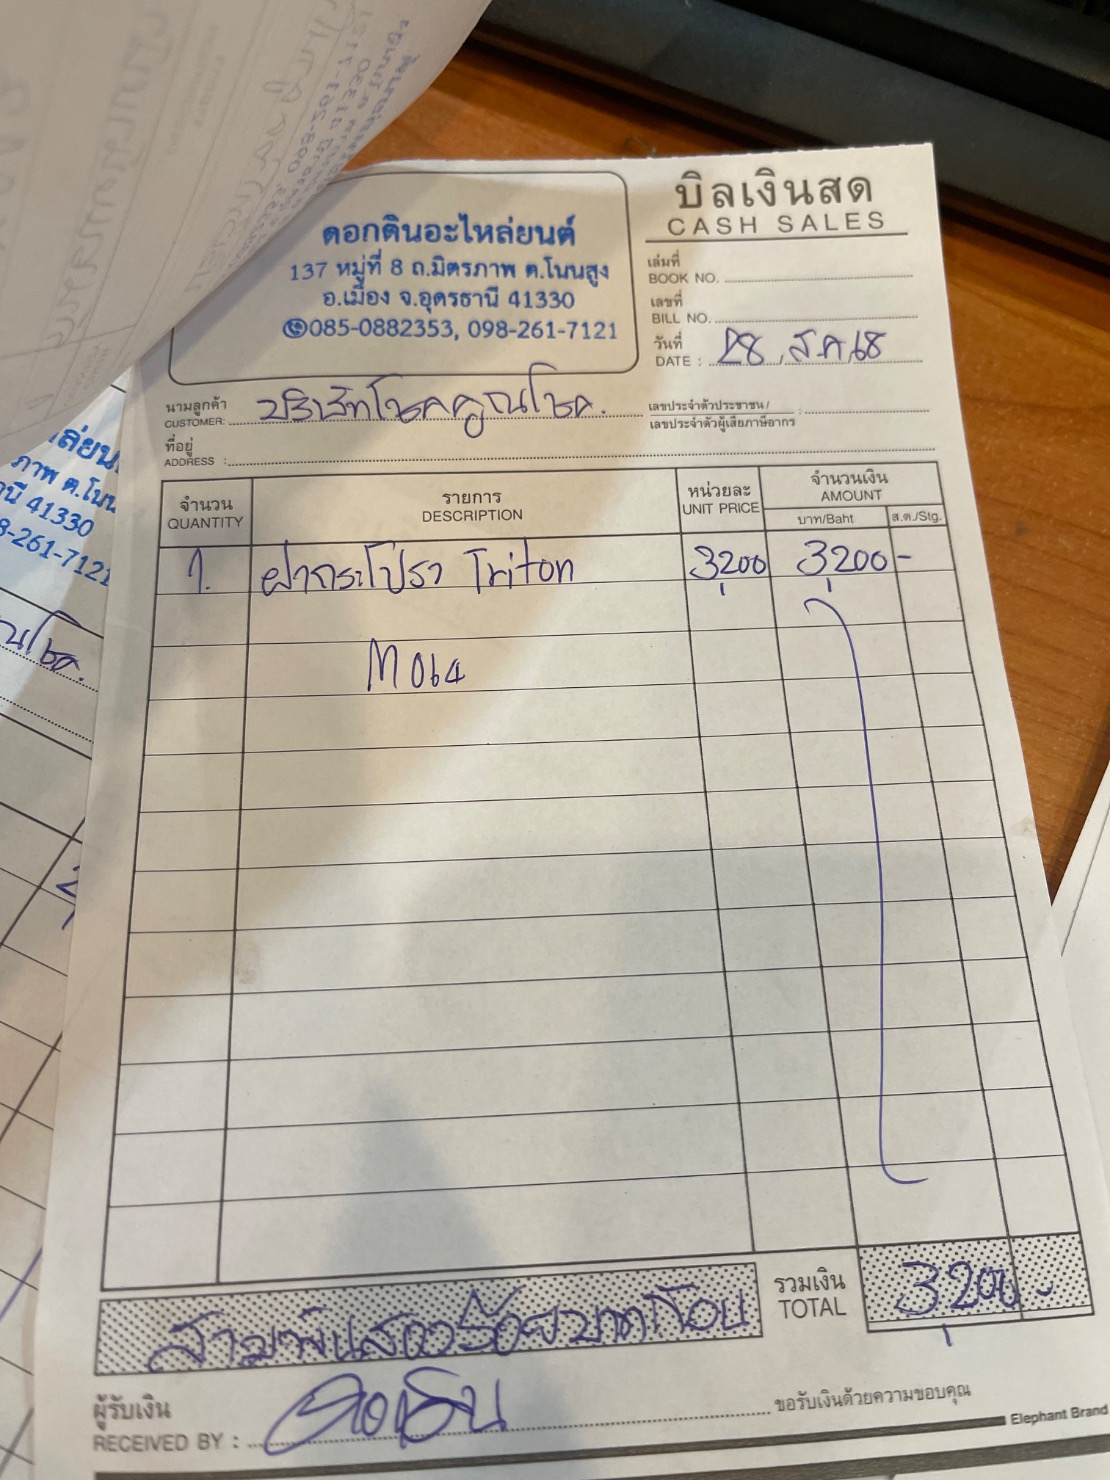 ดอกดินอะไหล่ยนต์
137 หมู่ที่ 8 ถ.มิตรภาพ ต.โนนสูง
อ.เมือง จ.อุดรธานี 41330
085-0882353, 098-261-7121
บิลเงินสด
CASH SALES
เล่มที่
BOOK NO.
เลขที่
BILL NO.
วันที่
DATE : 28 ส.ค 68
นามลูกค้า
CUSTOMER: บริษัทโชคคูณโชค.
เลขประจำตัวประชาชน/
เลขประจำตัวผู้เสียภาษีอากร :
ที่อยู่
ADDRESS :
จำนวน รายการ หน่วยละ จำนวนเงิน
QUANTITY DESCRIPTION UNIT PRICE AMOUNT
บาท/Baht ส.ต./Stg.
1. ฝากระโปรง Triton 3,200 3,200 -
M064
รวมเงิน
TOTAL 3,200 -
สามพันสองร้อยบาทถ้วน
ผู้รับเงิน
RECEIVED BY :
ขอรับเงินด้วยความขอบคุณ
Elephant Brand
ล่ยน
ภาพ ต.โนน
านี 41330
8-261-7121
ณโชค.